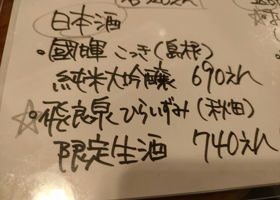 日本酒
・國暉 こっき(島根)
純米大吟醸 690えん
☆・飛良泉 ひらいずみ(秋田)
限定生酒 740えん